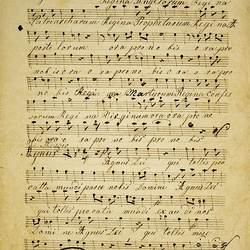 Regina Angelorum Regi na
Patriarcharum Regina Prophetarum Regi na A
posto lorum ora pro no bis o ra pro
nobis o ra pro no bis o ra pro
no bis Regi na Martyrum Regina Confes
sorum Regi na Virginum ora o ra pro no
bis ora o ra pro no bis pro no bis
Agnus Agnus Dei qui tollis pec
cata mundi parce nobis Domine Agnus Dei
qui tollis pec cata mundi ex au di nos
Domi ne Agnus Dei qui tollis